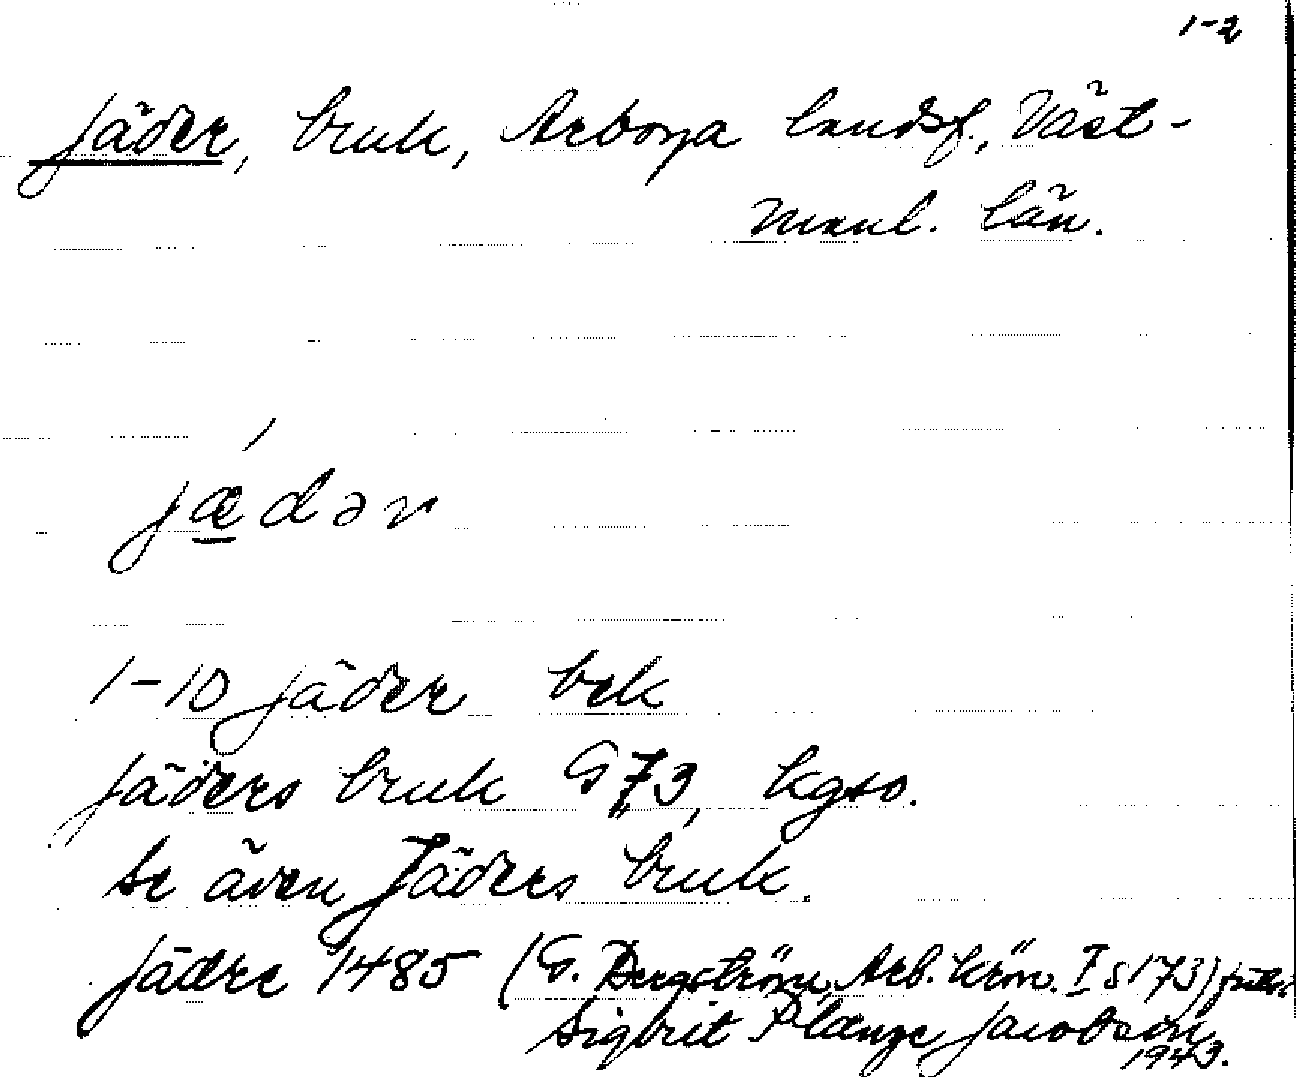 1-2
Jäder, bruk, Arboga landsf., Väst-
manl. län.
jædər
1-10 Jäder bek
Jäders bruk G73, kgso.
Se även Jäders bruk.
Jädre 1485 (G. Bergström, Arb. krön. I s 173)
Sigbrit Plænge Jacobson
1943.